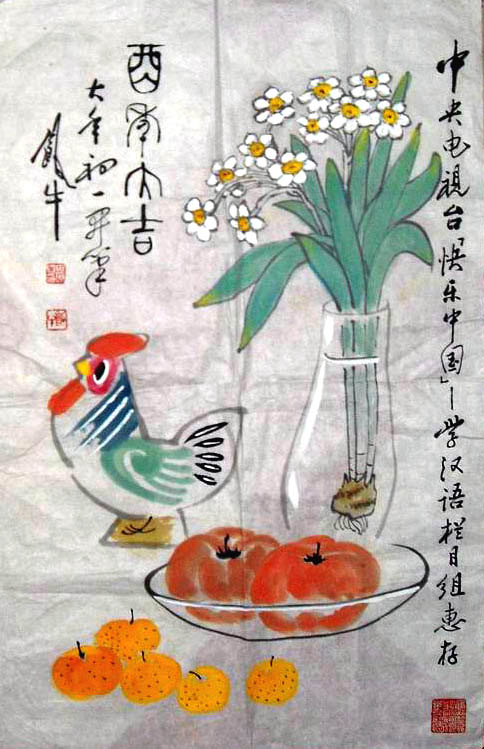 中央电視台「快乐中国」—学汉语栏目组惠存
酉年大吉
大年初一早笔
凤牛